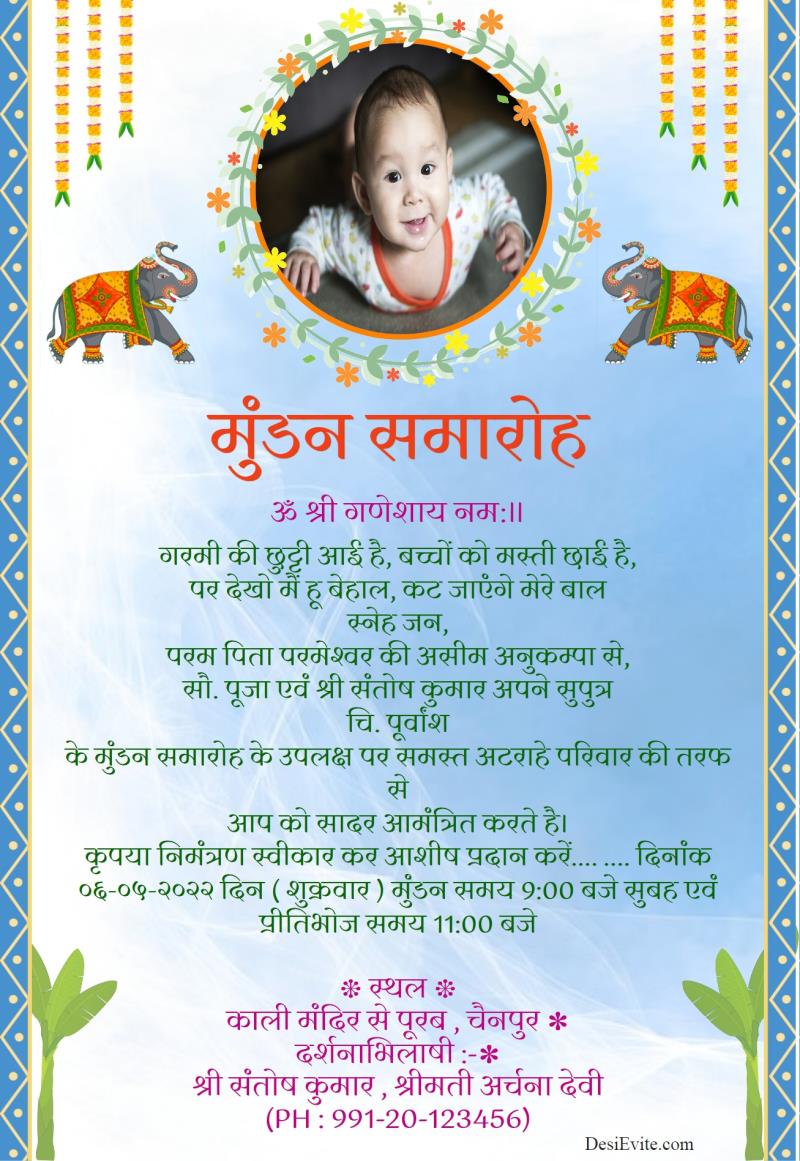 मुंडन समारोह
ॐ श्री गणेशाय नम:॥
गरमी की छुट्टी आई है, बच्चों को मस्ती छाई है,
पर देखो मैं हू बेहाल, कट जाएंगे मेरे बाल
स्नेह जन,
परम पिता परमेश्वर की असीम अनुकम्पा से,
सौ. पूजा एवं श्री संतोष कुमार अपने सुपुत्र
चि. पूर्वांश
के मुंडन समारोह के उपलक्ष पर समस्त अटराहे परिवार की तरफ
से
आप को सादर आमंत्रित करते है।
कृपया निमंत्रण स्वीकार कर आशीष प्रदान करें.... .... दिनांक
०६-०५-२०२२ दिन ( शुक्रवार ) मुंडन समय 9:00 बजे सुबह एवं
प्रीतिभोज समय 11:00 बजे
❇ स्थल ❇
काली मंदिर से पूरब , चैनपुर ✻
दर्शनाभिलाषी :-✻
श्री संतोष कुमार , श्रीमती अर्चना देवी
(PH : 991-20-123456)
DesiEvite.com